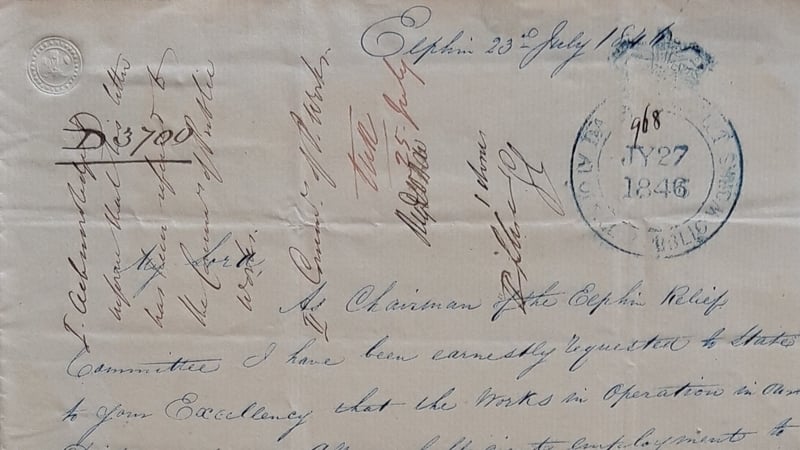 Elphin 23rd July 1846
D 3700
968
JY 27
1846
PUBLIC WORKS
I. Acknowledge
inform that his letter
has been referred to
the Commrs of Public
Works.
II Commrs of P. Works.
25 July
My Lord
As Chairman of the Elphin Relief
Committee I have been earnestly requested to State
to your Excellency that the Works in Operation in our
employment to